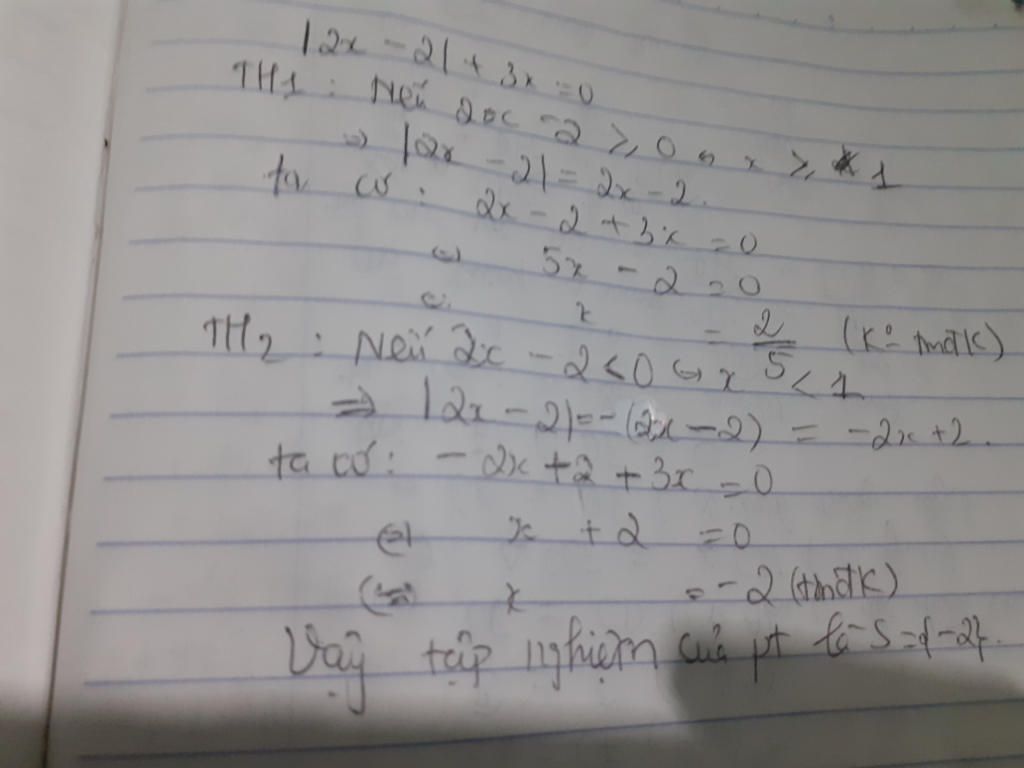 |2x - 2| + 3x = 0
TH1 : Nếu 2x - 2 ⩾ 0 ⇔ x ⩾ 1
⇒ |2x - 2| = 2x - 2.
ta có : 2x - 2 + 3x = 0
⇔ 5x - 2 = 0
⇔ x = 2/5 (Kº tmđK)
TH2 : Nếu 2x - 2 < 0 ⇔ x < 1
⇒ |2x - 2| = -(2x - 2) = -2x + 2.
ta có : - 2x + 2 + 3x = 0
⇔ x + 2 = 0
⇔ x = -2 (tmđK)
Vậy tập nghiệm của pt là S = {-2}.